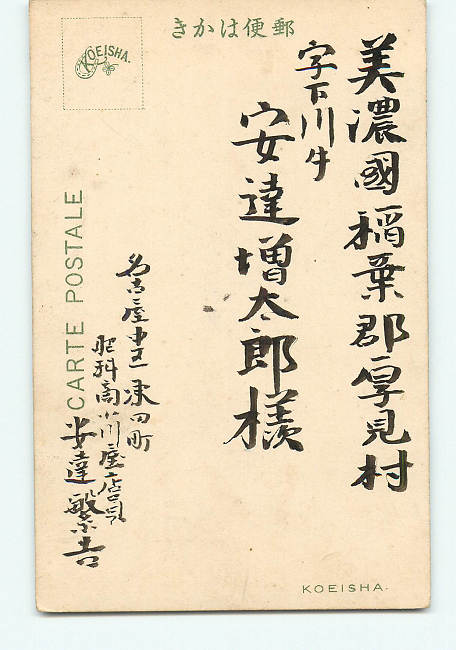 きかは便郵
KOEISHA.
美濃國稲葉郡厚見村
字下川手
安達増太郎様
名古屋市
町
肥料商小川屋店
安達繁吉
CARTE POSTALE
KOEISHA.